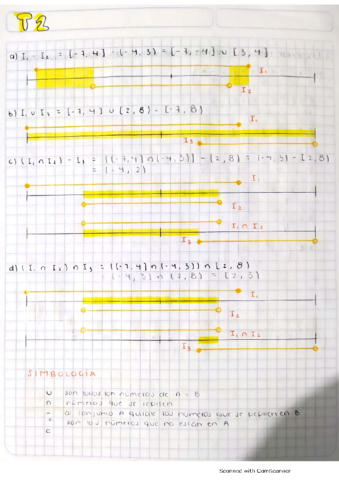 T2
a) I₁ - I₂ = [-7, 4] - (-4, 3) = [-7, -4] ∪ [3, 4]
I₁
I₂
b) I₁ ∪ I₃ = [-7, 4] ∪ [2, 8) = [-7, 8)
I₁
I₃
c) (I₁ ∩ I₂) - I₃ = ([-7, 4] ∩ (-4, 3)) - [2, 8) = (-4, 3) - [2, 8)
= (-4, 2)
I₁
I₂
I₁ ∩ I₂
I₃
d) (I₁ ∩ I₂) ∩ I₃ = ([-7, 4] ∩ (-4, 3)) ∩ [2, 8)
(-4, 3) ∩ [2, 8) = [2, 3)
I₁
I₂
I₁ ∩ I₂
I₃
SIMBOLOGÍA
∪ son todos los números de A + B
∩ números que se repiten
- al conjunto A quitale los números que se repiten en B
son los números que no están en A
c
Scanned with CamScanner